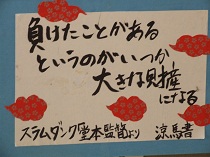 負けたことがある
というのがいつか
大きな財産になる
スラムダンク堂本監督より 涼馬書